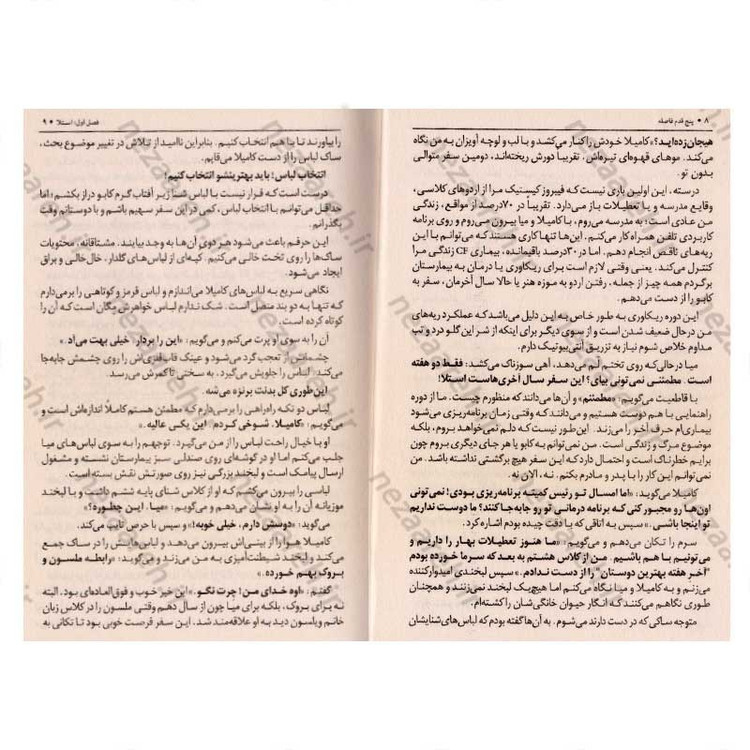 ۸ • پنج قدم فاصله
هیجان‌زده‌اید؟» کامیلا خودش را کنار می‌کشد و با لب و لوچه آویزان به من نگاه
می‌کند. موهای قهوه‌ای تیره‌اش، تقریباً دورش ریخته‌اند، دومین سفر متوالی
بدون تو.
درسته، این اولین باری نیست که فیبروز کیستیک مرا از اردوهای کلاسی،
وقایع مدرسه و یا تعطیلات باز می‌دارد. تقریباً در ۷۰درصد از مواقع، زندگی
من عادی است: به مدرسه می‌روم، با کامیلا و میا بیرون می‌روم و روی برنامه
کاربردی تلفن همراه کار می‌کنم. این‌ها تنها کاری هستند که می‌توانم با این
ریه‌های ناقص انجام دهم. اما در ۳۰درصد باقیمانده، بیماری CF زندگی مرا
کنترل می‌کند. یعنی وقتی لازم است برای ریکاوری یا درمان به بیمارستان
برگردم همه چیز از جمله، رفتن اردو به موزه هنر یا حالا سال آخرمان، سفر به
کابو را از دست می‌دهم.
این دوره ریکاوری به طور خاص به این دلیل می‌باشد که عملکرد ریه‌های
من درحال ضعیف شدن است و از سوی دیگر برای اینکه از شر این گلودرد و تب
مداوم خلاص شوم نیاز به تزریق آنتی‌بیوتیک دارم.
میا درحالی‌که روی تختم لَم می‌دهد، آهی سوزناک می‌کشد: فقط دو هفته
است. مطمئنی نمی‌تونی بیای؟ این سفر سال آخری‌هاست استلا!
با قاطعیت می‌گویم: «مطمئنم» و آن‌ها می‌دانند که منظورم چیست. ما از دوره
راهنمایی با هم دوست هستیم و می‌دانند که وقتی زمان برنامه‌ریزی می‌شود
بیماری‌ام حرف آخر را می‌زند. این طور نیست که دلم نمی‌خواهد بروم، بلکه
موضوع مرگ و زندگی است. من نمی‌توانم به کابو یا هر جای دیگری بروم چون
برایم خطرناک است و احتمال دارد که این سفر هیچ برگشتی نداشته باشد. من
نمی‌توانم این کار را با پدر و مادرم بکنم. نه، الان نه.
کامیلا می‌گوید: «اما امسال تو رئیس کمیته برنامه‌ریزی بودی! نمی‌تونی
اون‌ها رو مجبور کنی که برنامه درمانی تو رو جابه‌جا کنند؟ ما دوست نداریم
تو اینجا باشی.» سپس به اتاقی که با دقت چیده بودم اشاره کرد.
سرم را تکان می‌دهم و می‌گویم: «ما هنوز تعطیلات بهار را داریم و
می‌تونیم با هم باشیم. من از کلاس هشتم به بعد که سرما خورده بودم
"آخر هفته بهترین دوستان" را از دست ندادم.» سپس لبخندی امیدوارکننده
می‌زنم و به کامیلا و میا نگاه می‌کنم اما هیچ‌یک لبخند نمی‌زنند و همچنان
طوری نگاهم می‌کنند که انگار حیوان خانگی‌شان را کشته‌ام.
متوجه ساکی که در دست دارند می‌شوم. به آن‌ها گفته بودم که لباس‌های شنایشان
فصل اول: استلا • ۹
را بیاورند تا با هم انتخاب کنیم. بنابراین ناامید از تلاش در تغییر موضوع بحث،
ساک لباس را از دست کامیلا می‌قاپم.
انتخاب لباس! باید بهترینشو انتخاب کنیم!
درست است که قرار نیست با لباس شنا زیر آفتاب گرم کابو دراز بکشم؛ اما
حداقل می‌توانم با انتخاب لباس، کمی در این سفر سهیم باشم و با دوستانم وقت
بگذرانم.
این حرفم باعث می‌شود هر دوی آن‌ها به وجد بیایند. مشتاقانه، محتویات
ساک‌ها را روی تخت خالی می‌کنیم. کپه‌ای از لباس‌های گلدار، خال‌خالی و براق
ایجاد می‌شود.
نگاهی سریع به لباس‌های کامیلا می‌اندازم و لباس قرمز و کوتاهی را برمی‌دارم
که تنها به دو بند متصل است. شک ندارم لباس خواهرش مگان است که آن را
کوتاه کرده است.
آن را به سوی او پرت می‌کنم و می‌گویم: «این را بردار. خیلی بهت می‌آد.»
چشمانش از تعجب گرد می‌شود و عینک قاب‌فلزی‌اش را روی چشمش جابه‌جا
می‌کند. لباس را جلویش می‌گیرد. به سختی تا کمرش می‌رسد.
این طوری کل بدنت برنزه می‌شه.
لباس دو تکه راه‌راهی را برمی‌دارم که مطمئن هستم کاملاً اندازه‌اش است و
می‌گویم: «کامیلا. شوخی کردم! این یکی عالیه.»
او با خیال راحت لباس را از من می‌گیرد. توجهم را به سوی لباس‌های میا
جلب می‌کنم اما او در گوشه‌ای روی صندلی سبز بیمارستان نشسته و مشغول
ارسال پیامک است و لبخند بزرگی نیز روی صورتش نقش بسته است.
لباسی را بیرون می‌کشم که او از کلاس شنای پایه ششم داشت و با لبخند
موزیانه آن را به او نشان می‌دهم و می‌گویم: «میا. این چطوره؟»
می‌گوید: «دوسش دارم، خیلی خوبه!» و سپس با حرص تایپ می‌کند.
کامیلا هوا را از بینی‌اش بیرون می‌دهد و لباس‌هایش را در ساک جمع
می‌کند و لبخند شیطنت‌آمیزی به من می‌زند و می‌گوید: «رابطه ملسون و
بروک بهم خورده.»
گفتم: «اوه خدای من! چرت نگو.» این خبر خوب و فوق‌العاده‌ای بود. البته
نه برای بروک، بلکه برای میا چون از سال دهم وقتی ملسون را در کلاس زبان
خانم ویلسون دید به او علاقه‌مند شد. این سفر فرصت خوبی بود تا تکانی به
nezaasah.ir